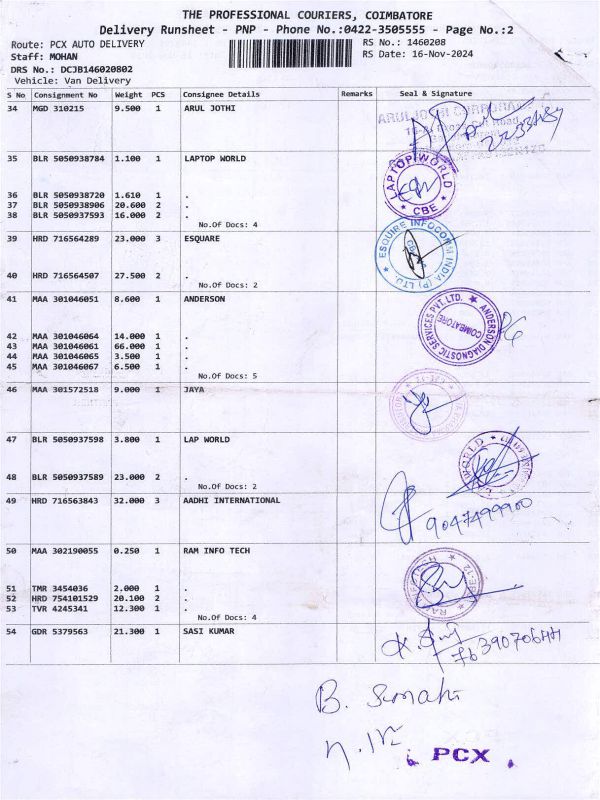 THE PROFESSIONAL COURIERS, COIMBATORE
Delivery Runsheet - PNP - Phone No.:0422-3505555 - Page No.:2
Route: PCX AUTO DELIVERY RS No.: 1460208
Staff: MOHAN RS Date: 16-Nov-2024
DRS No.: DCJB146020802
Vehicle: Van Delivery
S No Consignment No Weight PCS Consignee Details Remarks Seal & Signature
34 MGD 310215 9.500 1 ARUL JOTHI
35 BLR 5050938784 1.100 1 LAPTOP WORLD
LAPTOP WORLD
★ CBE ★
36 BLR 5050938720 1.610 1 .
37 BLR 5050938906 20.600 2 .
38 BLR 5050937593 16.000 2 .
No.Of Docs: 4
39 HRD 716564289 23.000 3 ESQUARE
ESQUIRE INFOCOM INDIA (P) LTD.
40 HRD 716564507 27.500 2 .
No.Of Docs: 2
41 MAA 301046051 8.600 1 ANDERSON
ANDERSON DIAGNOSTIC SERVICES PVT. LTD. ★
COIMBATORE
42 MAA 301046064 14.000 1 .
43 MAA 301046061 66.000 1 .
44 MAA 301046065 3.500 1 .
45 MAA 301046067 6.500 1 .
No.Of Docs: 5
46 MAA 301572518 9.000 1 JAYA
47 BLR 5050937598 3.800 1 LAP WORLD
48 BLR 5050937589 23.000 2 .
No.Of Docs: 2
49 HRD 716563843 32.000 3 AADHI INTERNATIONAL
9047499900
50 MAA 302190055 0.250 1 RAM INFO TECH
51 TMR 3454036 2.000 1 .
52 HRD 754101529 20.100 2 .
53 TVR 4245341 12.300 1 .
No.Of Docs: 4
54 GDR 5379563 21.300 1 SASI KUMAR
B.
PCX